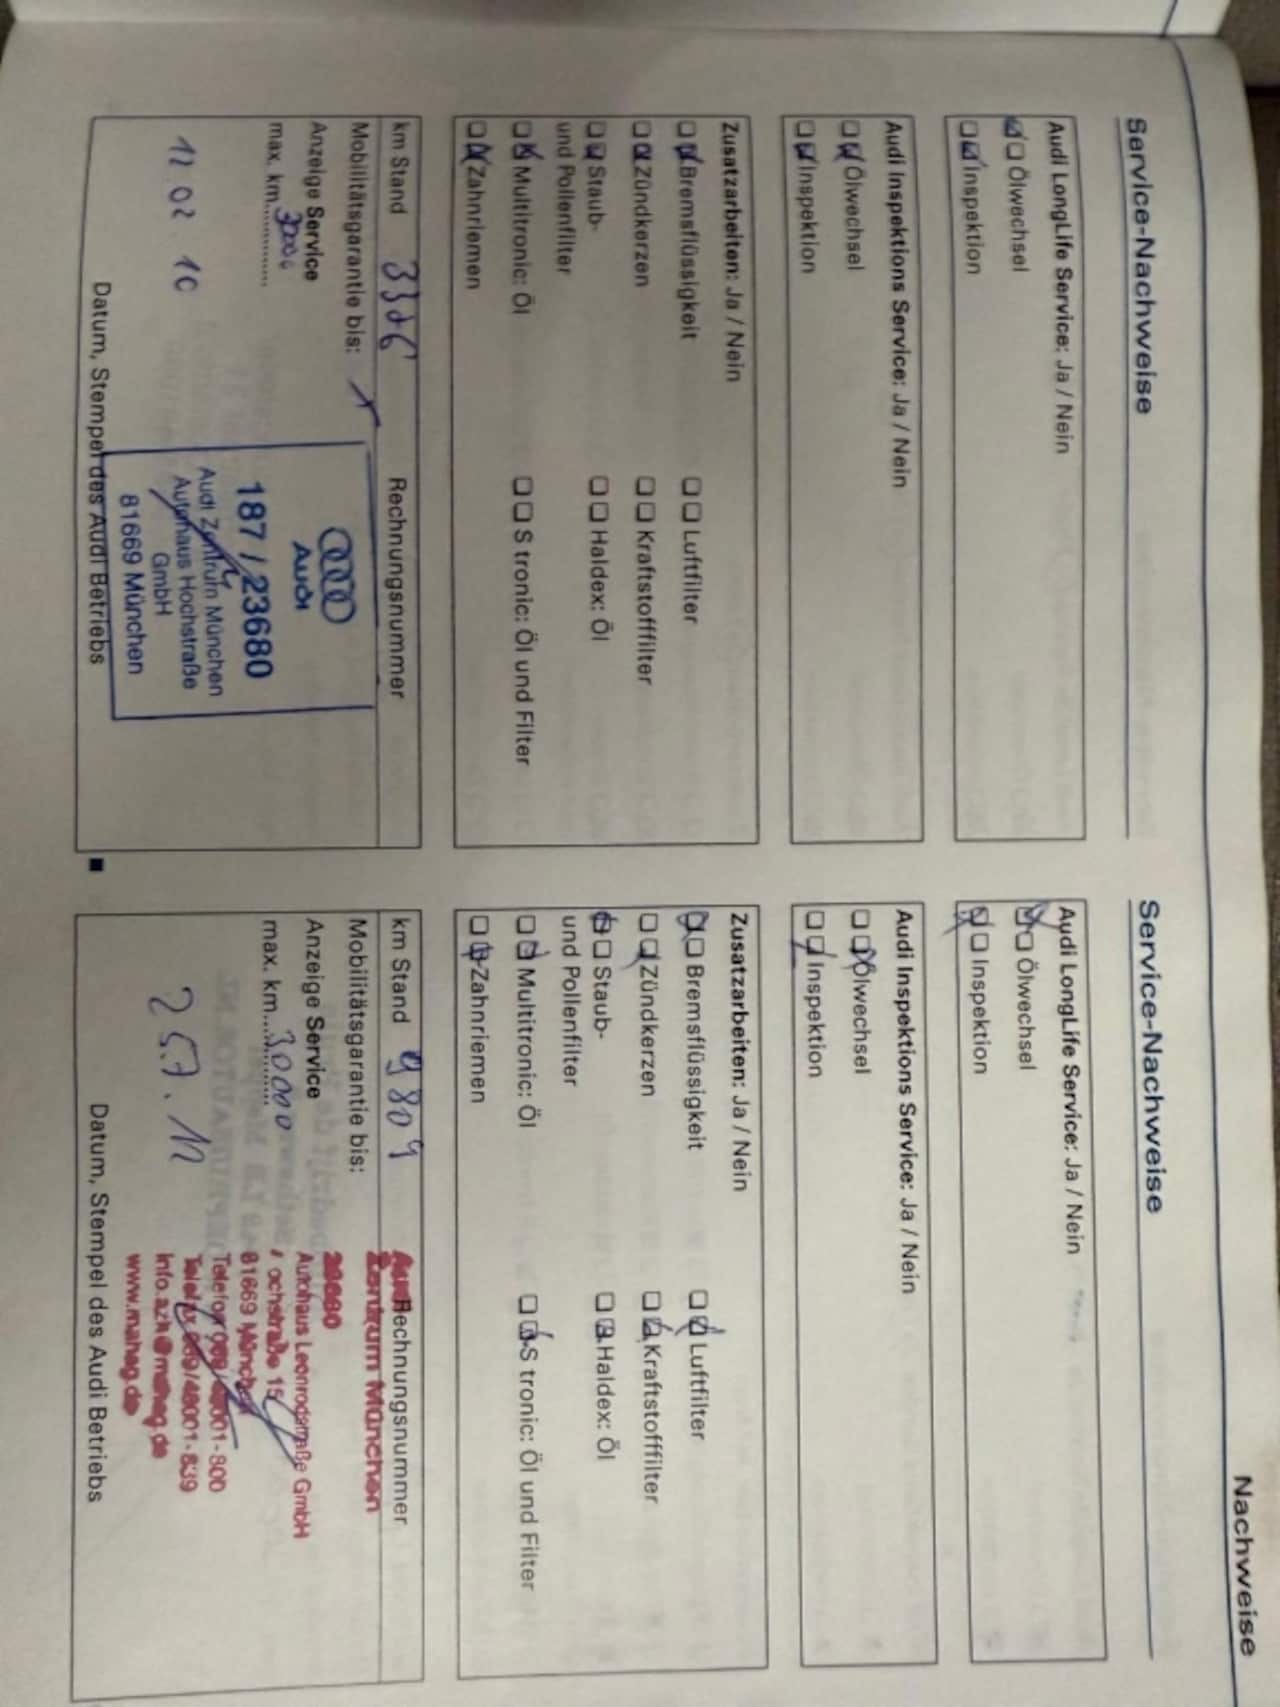 Nachweise
Service-Nachweise
Audi LongLife Service: Ja / Nein
Ölwechsel
Inspektion
Audi Inspektions Service: Ja / Nein
Ölwechsel
Inspektion
Zusatzarbeiten: Ja / Nein
Bremsflüssigkeit
Luftfilter
Zündkerzen
Kraftstofffilter
Staub-
und Pollenfilter
Haldex: Öl
Multitronic: Öl
S tronic: Öl und Filter
Zahnriemen
km Stand
Rechnungsnummer
Mobilitätsgarantie bis:
Anzeige Service
max. km
12.02.10
Audi
187 / 23680
Audi Zentrum München
Autohaus Hochstraße
GmbH
81669 München
Datum, Stempel des Audi Betriebs
Service-Nachweise
Audi LongLife Service: Ja / Nein
Ölwechsel
Inspektion
Audi Inspektions Service: Ja / Nein
Ölwechsel
Inspektion
Zusatzarbeiten: Ja / Nein
Bremsflüssigkeit
Luftfilter
Zündkerzen
Kraftstofffilter
Staub-
und Pollenfilter
Haldex: Öl
Multitronic: Öl
S tronic: Öl und Filter
Zahnriemen
km Stand 9809
Rechnungsnummer
Mobilitätsgarantie bis:
Anzeige Service
max. km 30000
25.7.11
Zentrum München
Autohaus Leonrodstraße GmbH
81669 München
www.mahag.de
Datum, Stempel des Audi Betriebs